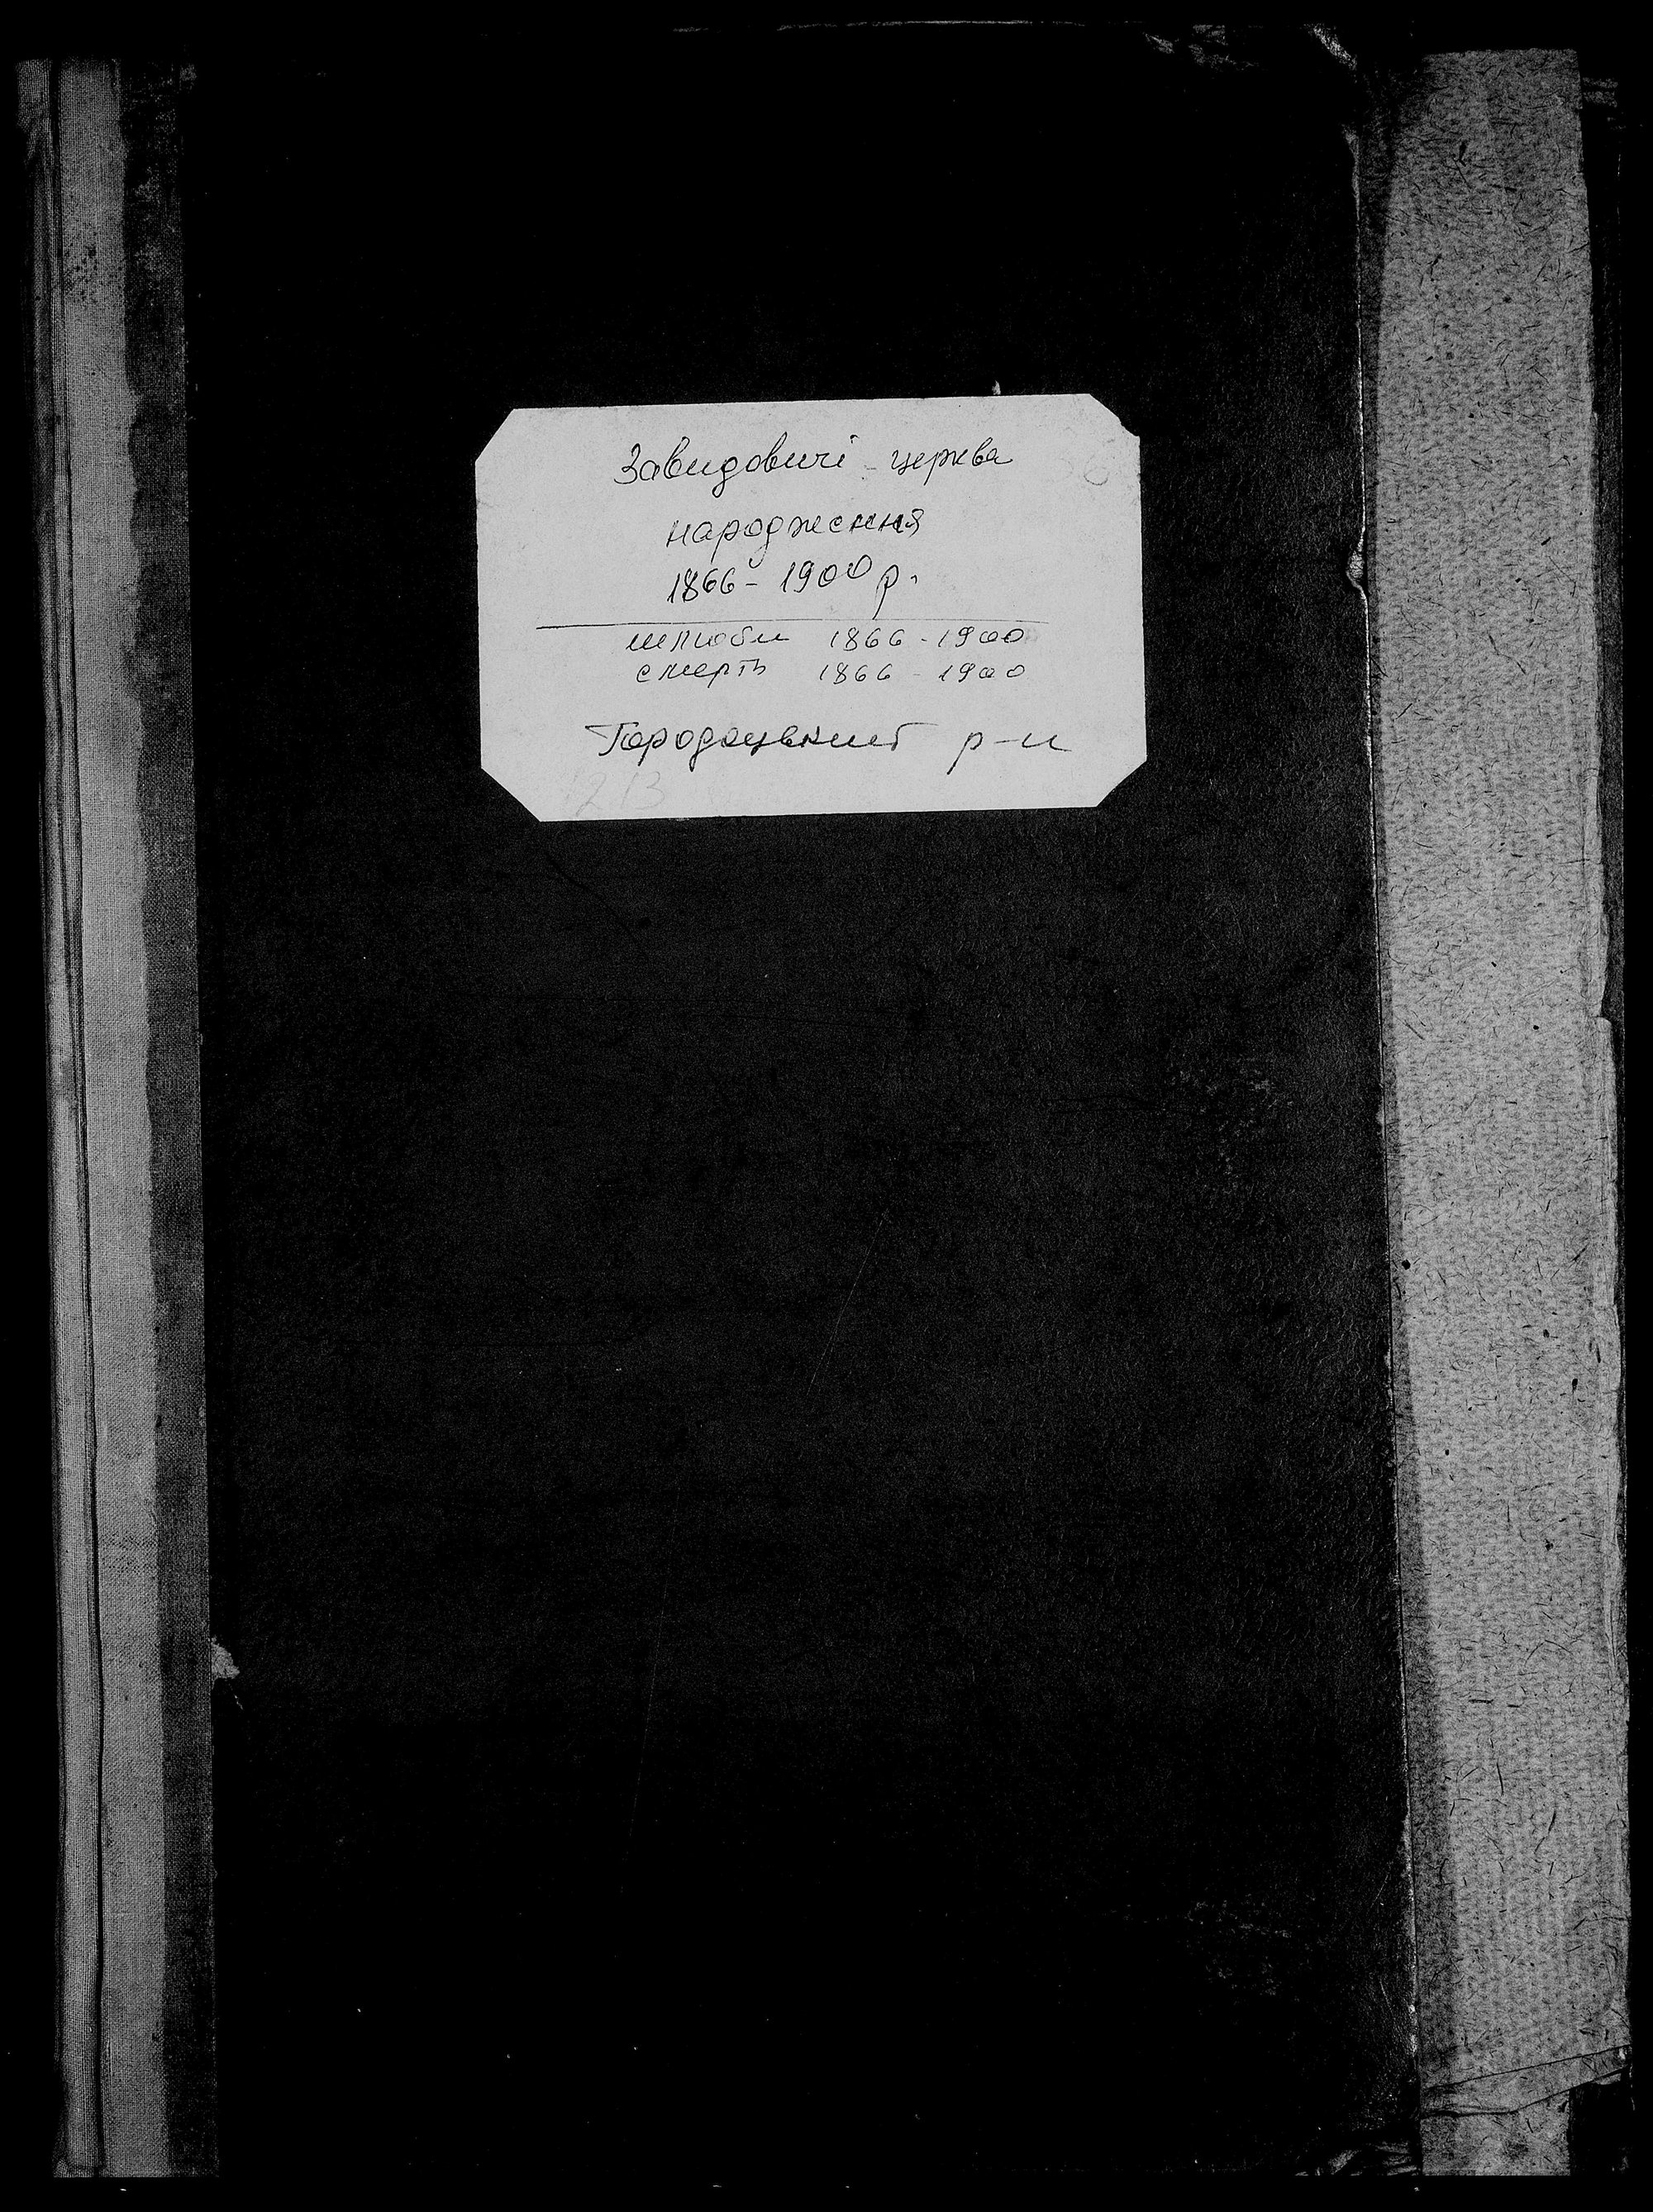 Завидовичі - церква
народження
1866 - 1900 р.
шлюби 1866 - 1900
смерть 1866 - 1900
Городоцький р-н
213